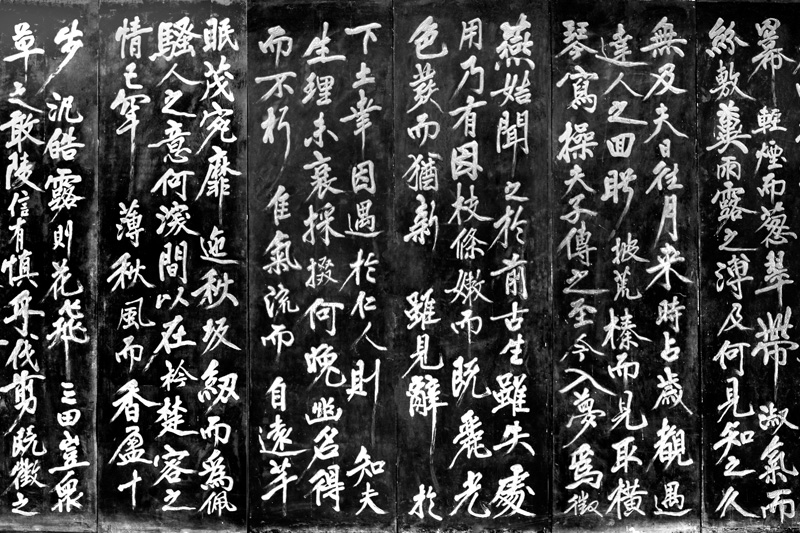 冪輕煙而葱翠帶淑氣而
紛敷冀雨露之溥及何見知之久
無及夫日往月来時占歲覩遇
達人之回眄披荒榛而見取橫
琴寫操夫子傳之至今入夢爲徵
燕姞聞之於前古生雖失處
用乃有因枝條嫩而既麗光
色發而猶新雖見辭於
下土幸因遇於仁人則知夫
生理未衰採掇何晚幽名得
而不朽佳氣流而自遠芊
眠茂宛靡迤秋坂紉而爲佩
騷人之意何深間以在衿楚客之
情已罕薄秋風而香盈十
步汎皓露則花飛三田豈衆
草之敢陵信有慎乎伐剪既徵之